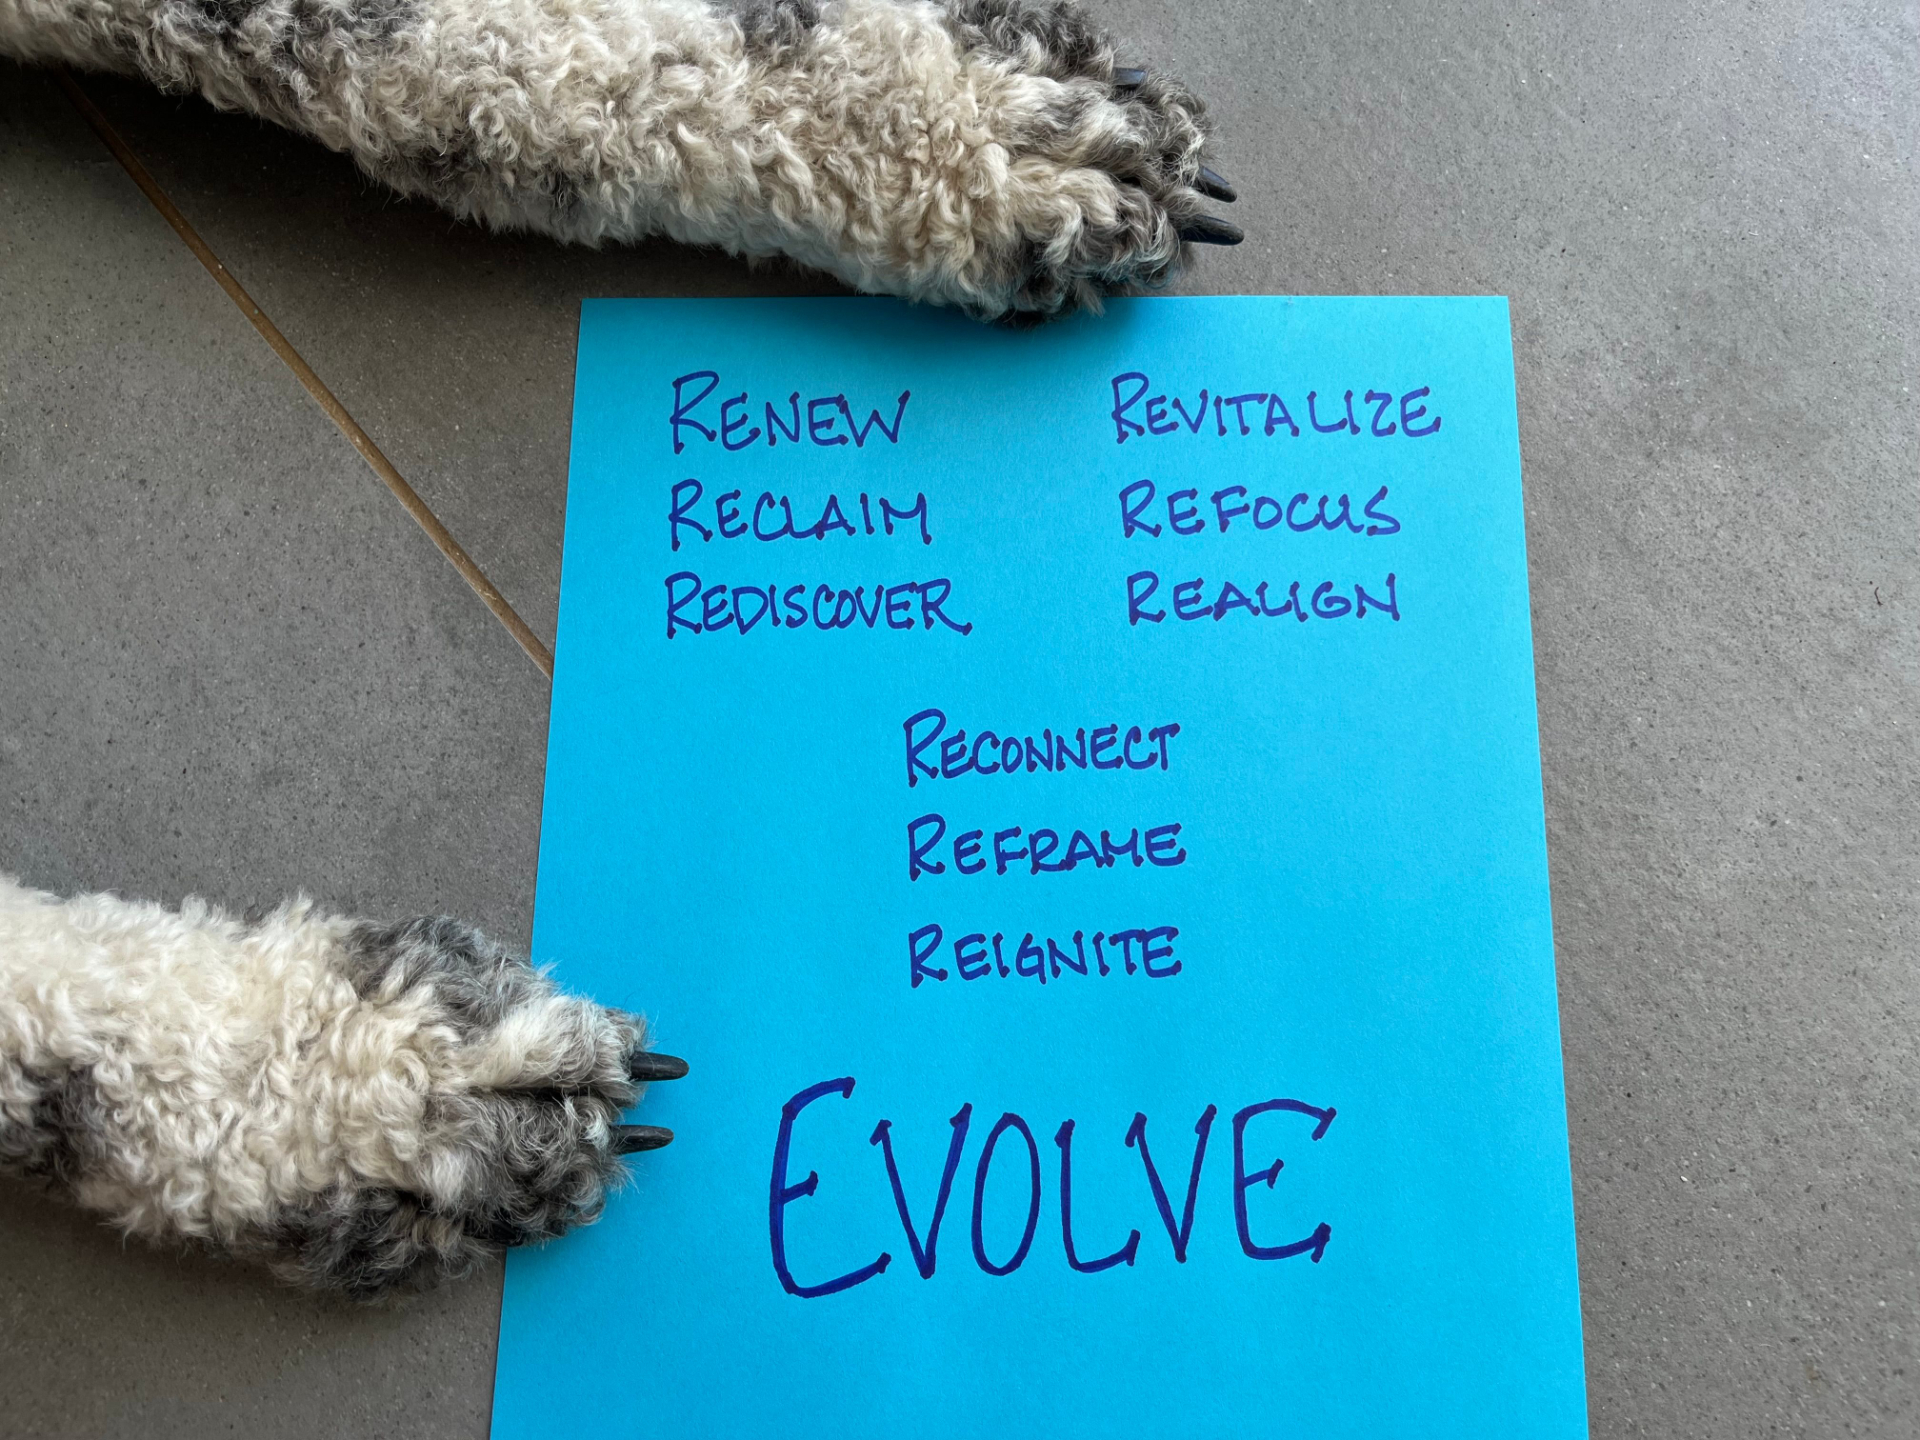 RENEW
RECLAIM
REDISCOVER
REVITALIZE
REFOCUS
REALIGN
RECONNECT
REFRAME
REIGNITE
EVOLVE